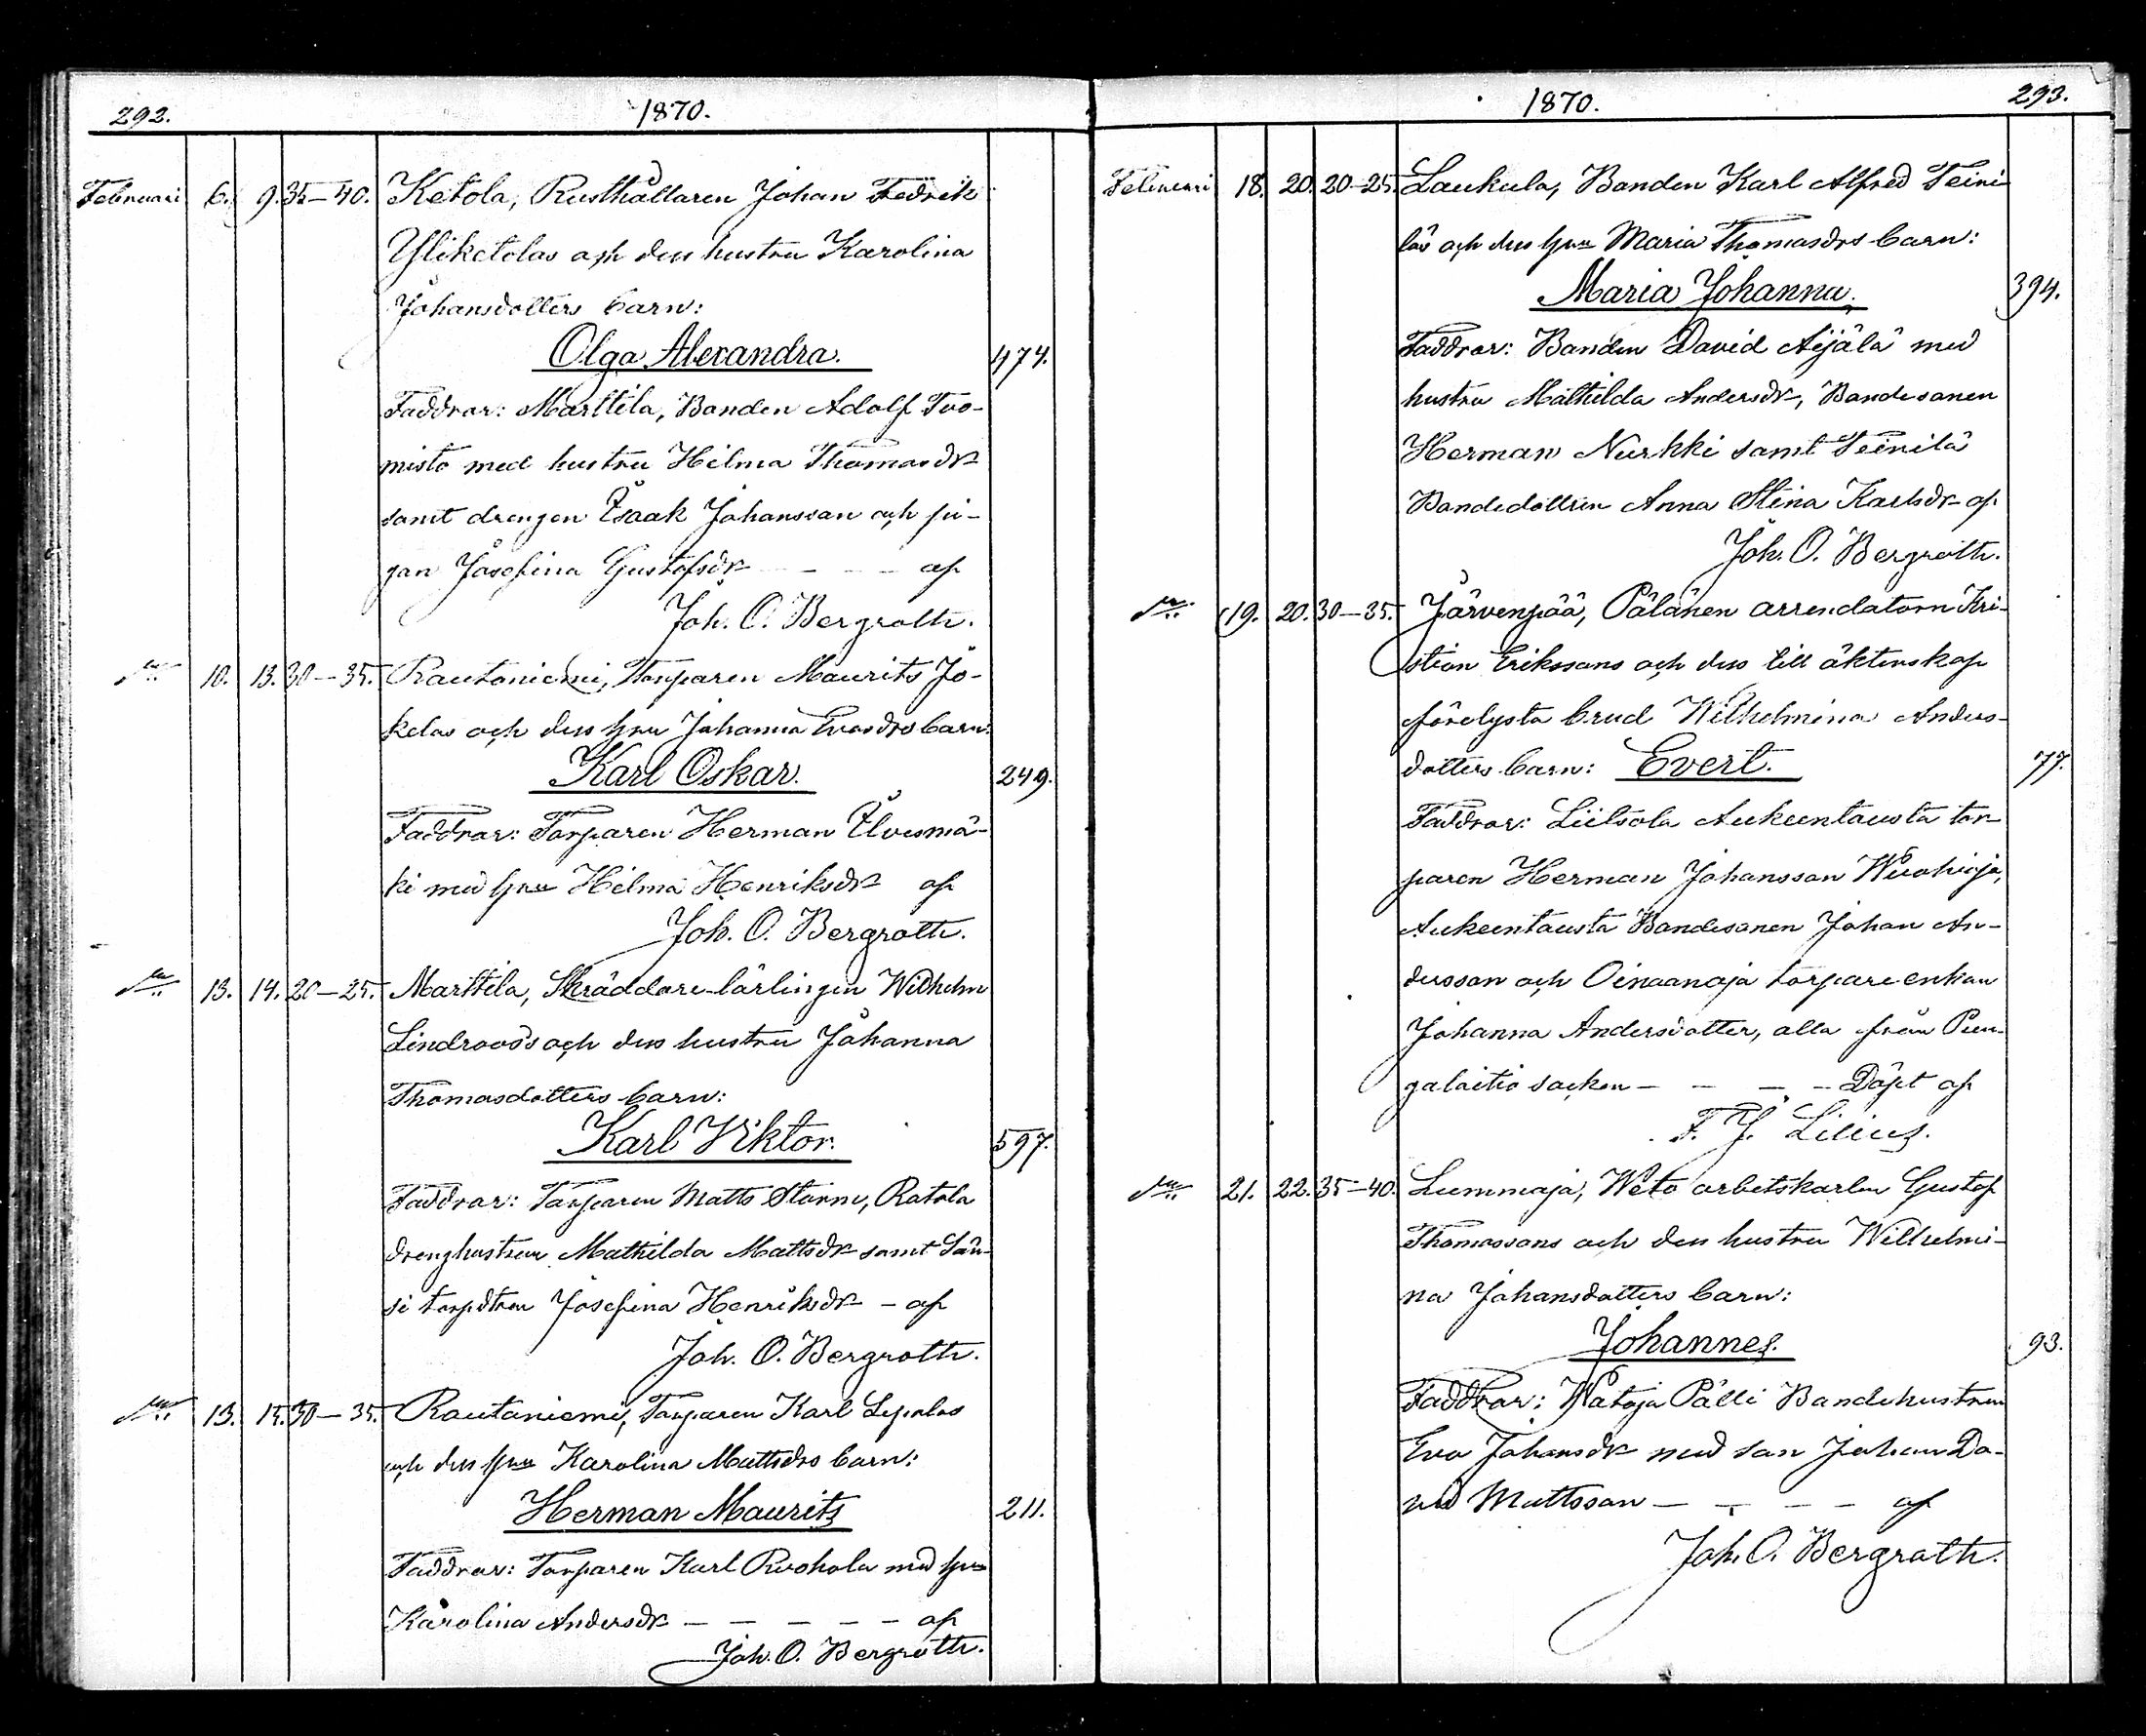 292.
1870.
Februari 6. 9. 35–40. Ketola, Rusthållaren Johan Fedrik
Yliketolas och dess hustru Karolina
Johansdotters barn:
Olga Alexandra. 474.
Faddrar: Marttila, Bonden Adolf Tuo-
misto med hustru Hilma Thomasdr
samt drengen Isaak Johansson och pi-
gan Josefina Gustafsdr – – – – af
Joh. O. Bergroth.
10. 13. 30–35. Rautaniemi, Torparen Maurits Jo-
kelas och dess hru Johanna Evasdrs barn:
Karl Oskar. 249.
Faddrar: Torparen Herman Ilvesmä-
ki med hru Hilma Henriksdr af
Joh. O. Bergroth.
13. 14. 20–25. Marttila, Skräddare lärlingen Wilhelm
Lindroos's och dess hustru Johanna
Thomasdotters barn:
Karl Viktor. 597.
Faddrar: Torparen Matts Storm, Ratola
drenghustrun Mathilda Mattsdr samt
si torpdtren Josefina Henriksdr – af
Joh. O. Bergroth.
13. 15. 30–35. Rautaniemi, Torparen Karl Lepolas
och dess hru Karolina Mattsdrs barn:
Herman Maurits 211.
Faddrar: Torparen Karl Ruohola med hru
Karolina Andersdr – – – – – af
Joh. O. Bergroth.
1870.
293.
Februari 18. 20. 20–25. Laukula, Bonden Karl Alfred Teini-
läs och dess hru Maria Thomasdrs barn:
Maria Johanna. 394.
Faddrar: Bonden David Äijälä med
hustru Mathilda Andersdr, Bondesonen
Herman Nurkki samt Teinilä
Bondedottren Anna Stina Karlsdr af
Joh. O. Bergroth.
19. 20. 30–35. Järvenpää, Pälänen arrendatorn Kri-
stian Erikssons och dess till äktenskap
förelysta brud Wilhelmina Anders-
dotters barn: Evert. 77.
Faddrar: Liitsola Aukeentausta tor-
paren Herman Johansson Wuohioja,
Aukeentausta Bondesonen Johan An-
dersson och Oinaanoja torpare enkan
Johanna Andersdotter, alla från Pun-
galaitio socken – – – – Döpt af
F. J. Lilius.
21. 22. 35–40. Lummaja, Weto arbetskarlen Gustaf
Thomassons och dess hustru Wilhelmi-
na Johansdotters barn:
Johannes. 93.
Faddrar: Wataja Pälli Bondehustrun
Eva Johansdr med son Johan Da-
vid Mattsson – – – – af
Joh. O. Bergroth.